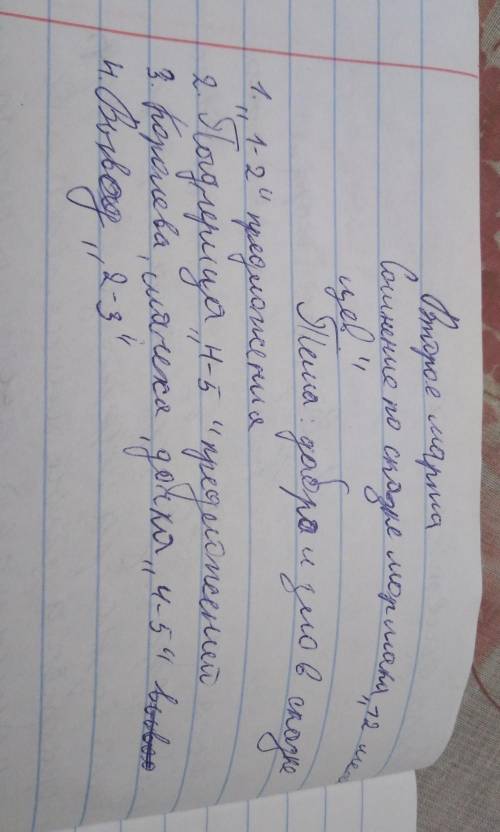 Второе марта
Сочинение по сказке маршака „12 меся
цев"
Тема: добра и зло в сказке
1. „1-2" предложения
2. Падчерица „4-5" предложений
3. Королева, мачеха, дочка „4-5" вывод
4. Вывод „2-3"